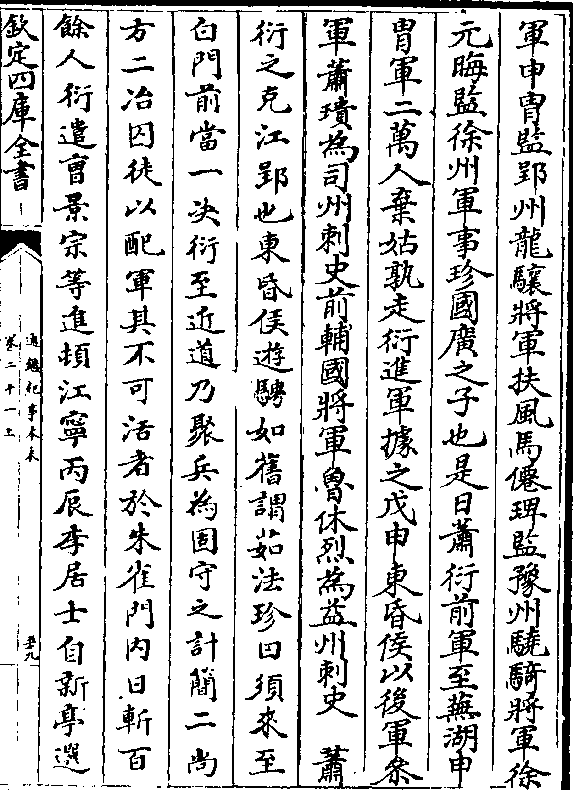 軍申胄監郢州龍驤將軍扶風馬僊琕監豫州驍騎將軍徐
元晦監徐州軍事珍國廣之子也是日蕭衍前軍至蕪湖申
胄軍二萬人棄姑孰走衍進軍據之戊申東昏侯以後軍參
軍蕭璝為司州刺史前輔國將軍魯休烈為益州刺史　蕭
衍之克江郢也東昏侯遊騁如舊謂茹法珍曰須來至
白門前當一決衍至近道乃聚兵為固守之計簡二尚
方二冶囚徒以配軍其不可活者於朱雀門內日斬百
餘人衍遣曹景宗等進頓江寧丙辰李居士自新亭選
欽定四庫全書
通鑑紀事本末
卷二十一上
五九